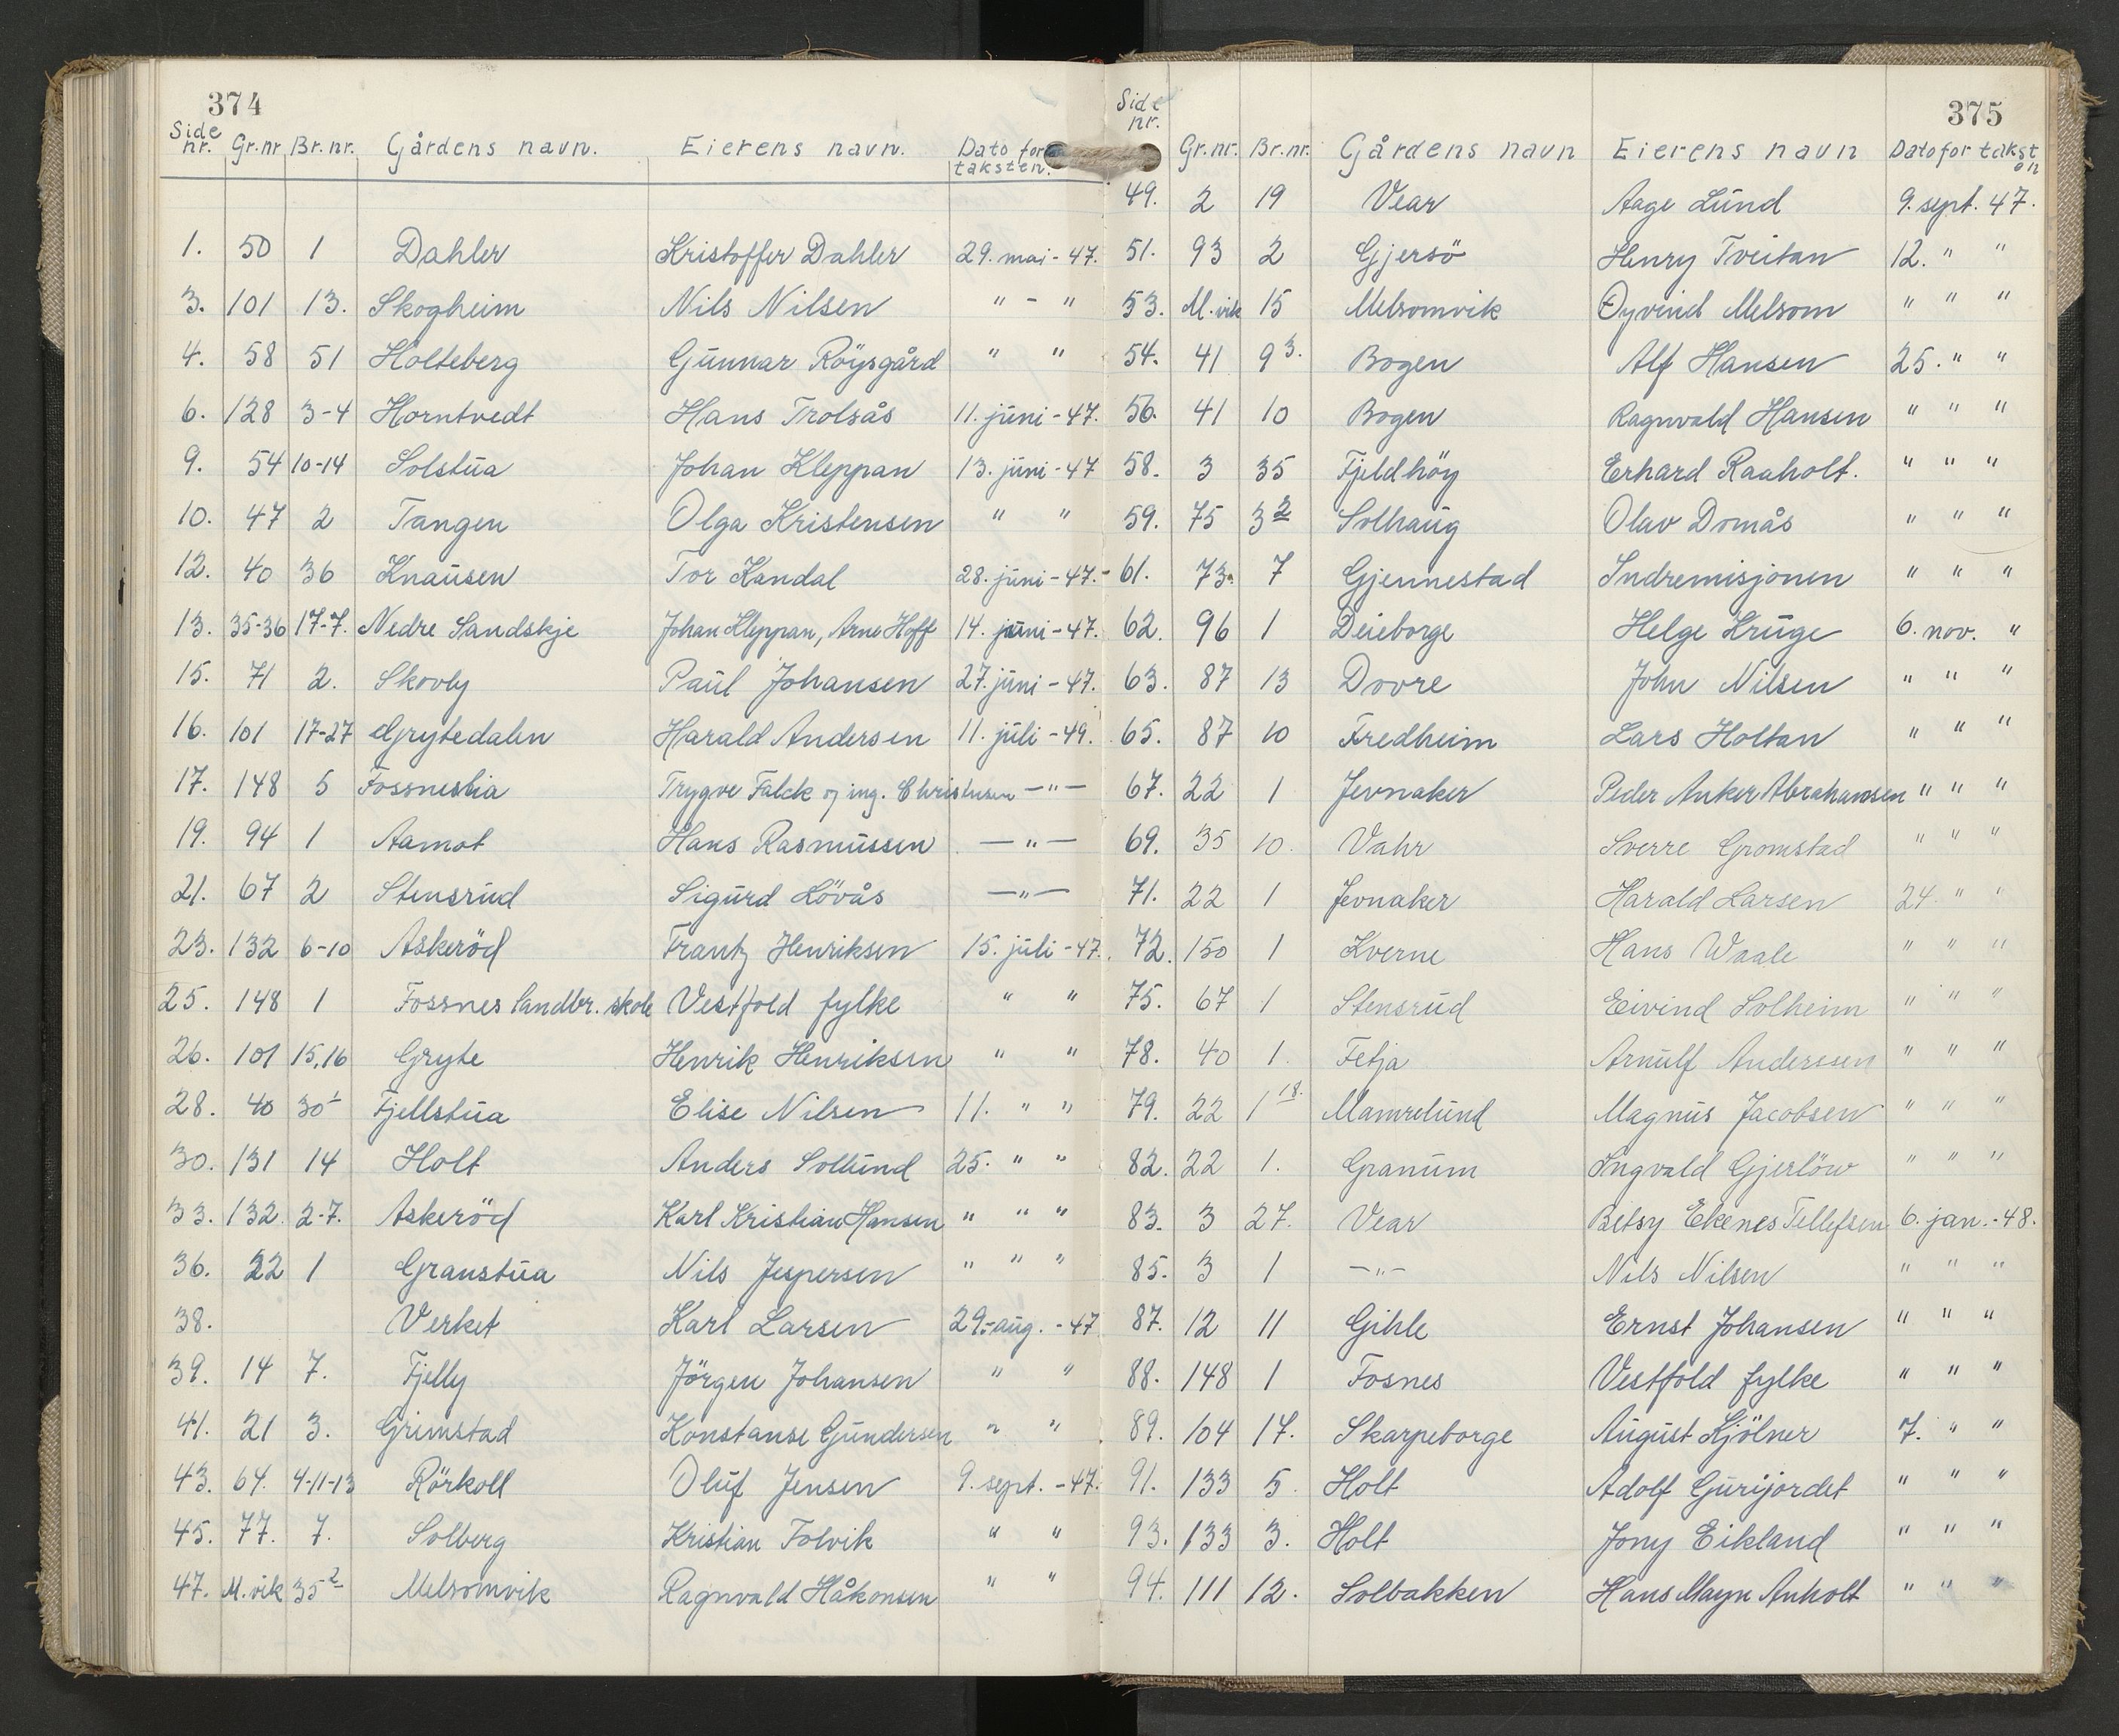 374
Side nr. Gr.nr Br.nr. Gårdens navn. Eierens navn. Dato for taksten.
1. 50 1 Dahler Kristoffer Dahler 29. mai - 47.
3. 101 13. Skogheim Nils Nilsen " - "
4. 58 51 Holteberg Gunnar Röysgård " "
6. 128 3-4 Horntvedt Hans Trolsås 11. juni - 47.
9. 54 10-14 Solstua Johan Kleppan 13. juni - 47
10. 47 2 Tangen Olga Kristensen " "
12. 40 36 Knausen Tor Kandal 28. juni - 47.
13. 35-36 17-7. Nedre Sandskje Johan Kleppan, Arne Hoff 14. juni - 47.
15. 71 2. Skovly Paul Johansen 27. juni - 47.
16. 101 17-27 Grytedalen Harald Andersen 11. juli - 49.
17. 148 5 Fossneslia Trygve Falck og ing. Christensen — " —
19. 94 1 Aamot Hans Rasmussen — " —
21. 67 2 Stensrud Sigurd Lövås — " —
23. 132 6-10 Askeröd Frantz Henriksen 15. juli - 47.
25. 148 1 Fossnes landbr. skole Vestfold fylke " "
26. 101 15,16 Gryte Henrik Henriksen " "
28. 40 30¹ Fjellstua Elise Nilsen 11. " "
30. 131 14 Holt Anders Sollund 25. " "
33. 132. 2-7. Askeröd Karl Kristian Hansen " " "
36. 22 1 Granstua Nils Jespersen " " "
38. Verket Karl Larsen 29. aug. - 47
39. 14 7. Fjelly Jörgen Johansen " "
41. 21 3. Grimstad Konstanse Gundersen " "
43. 64. 4-11-13 Rörkoll Oluf Jensen 9. sept. - 47.
45. 77. 7. Solberg Kristian Tolvik " "
47. M.vik 35² Melsomvik Ragnvald Håkonsen " "
375
Side nr. Gr.nr. Br.nr. Gårdens navn Eierens navn Dato for taksten
49. 2 19 Vear Aage Lund 9. sept. 47.
51. 93 2 Gjersö Henry Tveitan 12. " "
53. M.vik 15 Melsomvik Øyvind Melsom " " "
54. 41 9³. Bogen Alf Hansen 25. " "
56. 41 10 Bogen Ragnvald Hansen " " "
58. 3 35 Fjeldhöy Erhard Raaholt. " " "
59. 75 3² Solhaug Olav Domås " " "
61. 73. 7 Gjennestad Indremisjonen " " "
62. 96 1 Deieborge Helge Kruge 6. nov. "
63. 87 13 Dovre John Nilsen " " "
65. 87 10 Fredheim Lars Holtan " " "
67. 22 1 Jevnaker Peder Anker Abrahamsen " " "
69. 35 10. Vahr Sverre Gromstad " " "
71. 22 1 Jevnaker Harald Larsen 24. " "
72. 150 1 Kverne Hans Waale " " "
75. 67 1 Stensrud Eivind Solheim " " "
78. 40 1. Fetja Arnulf Anderssen " " "
79. 22 1 18. Mamrelund Magnus Jacobsen " " "
82. 22 1. Granum Ingvald Gjerlöw " " "
83. 3 27. Vear Betsy Ekenes Tellefsen 6. jan. - 48.
85. 3 1 — " — Nils Nilsen " " "
87. 12 11 Gihle Ernst Johansen " " "
88. 148 1 Fosnes Vestfold fylke " " "
89. 104 17. Skarpeborge August Kjölner 7. " "
91. 133 5. Holt Adolf Gurijordet " " "
93. 133 3. Holt Jony Eikland " " "
94. 111 12. Solbakken Hans Mayn Anholt " " "